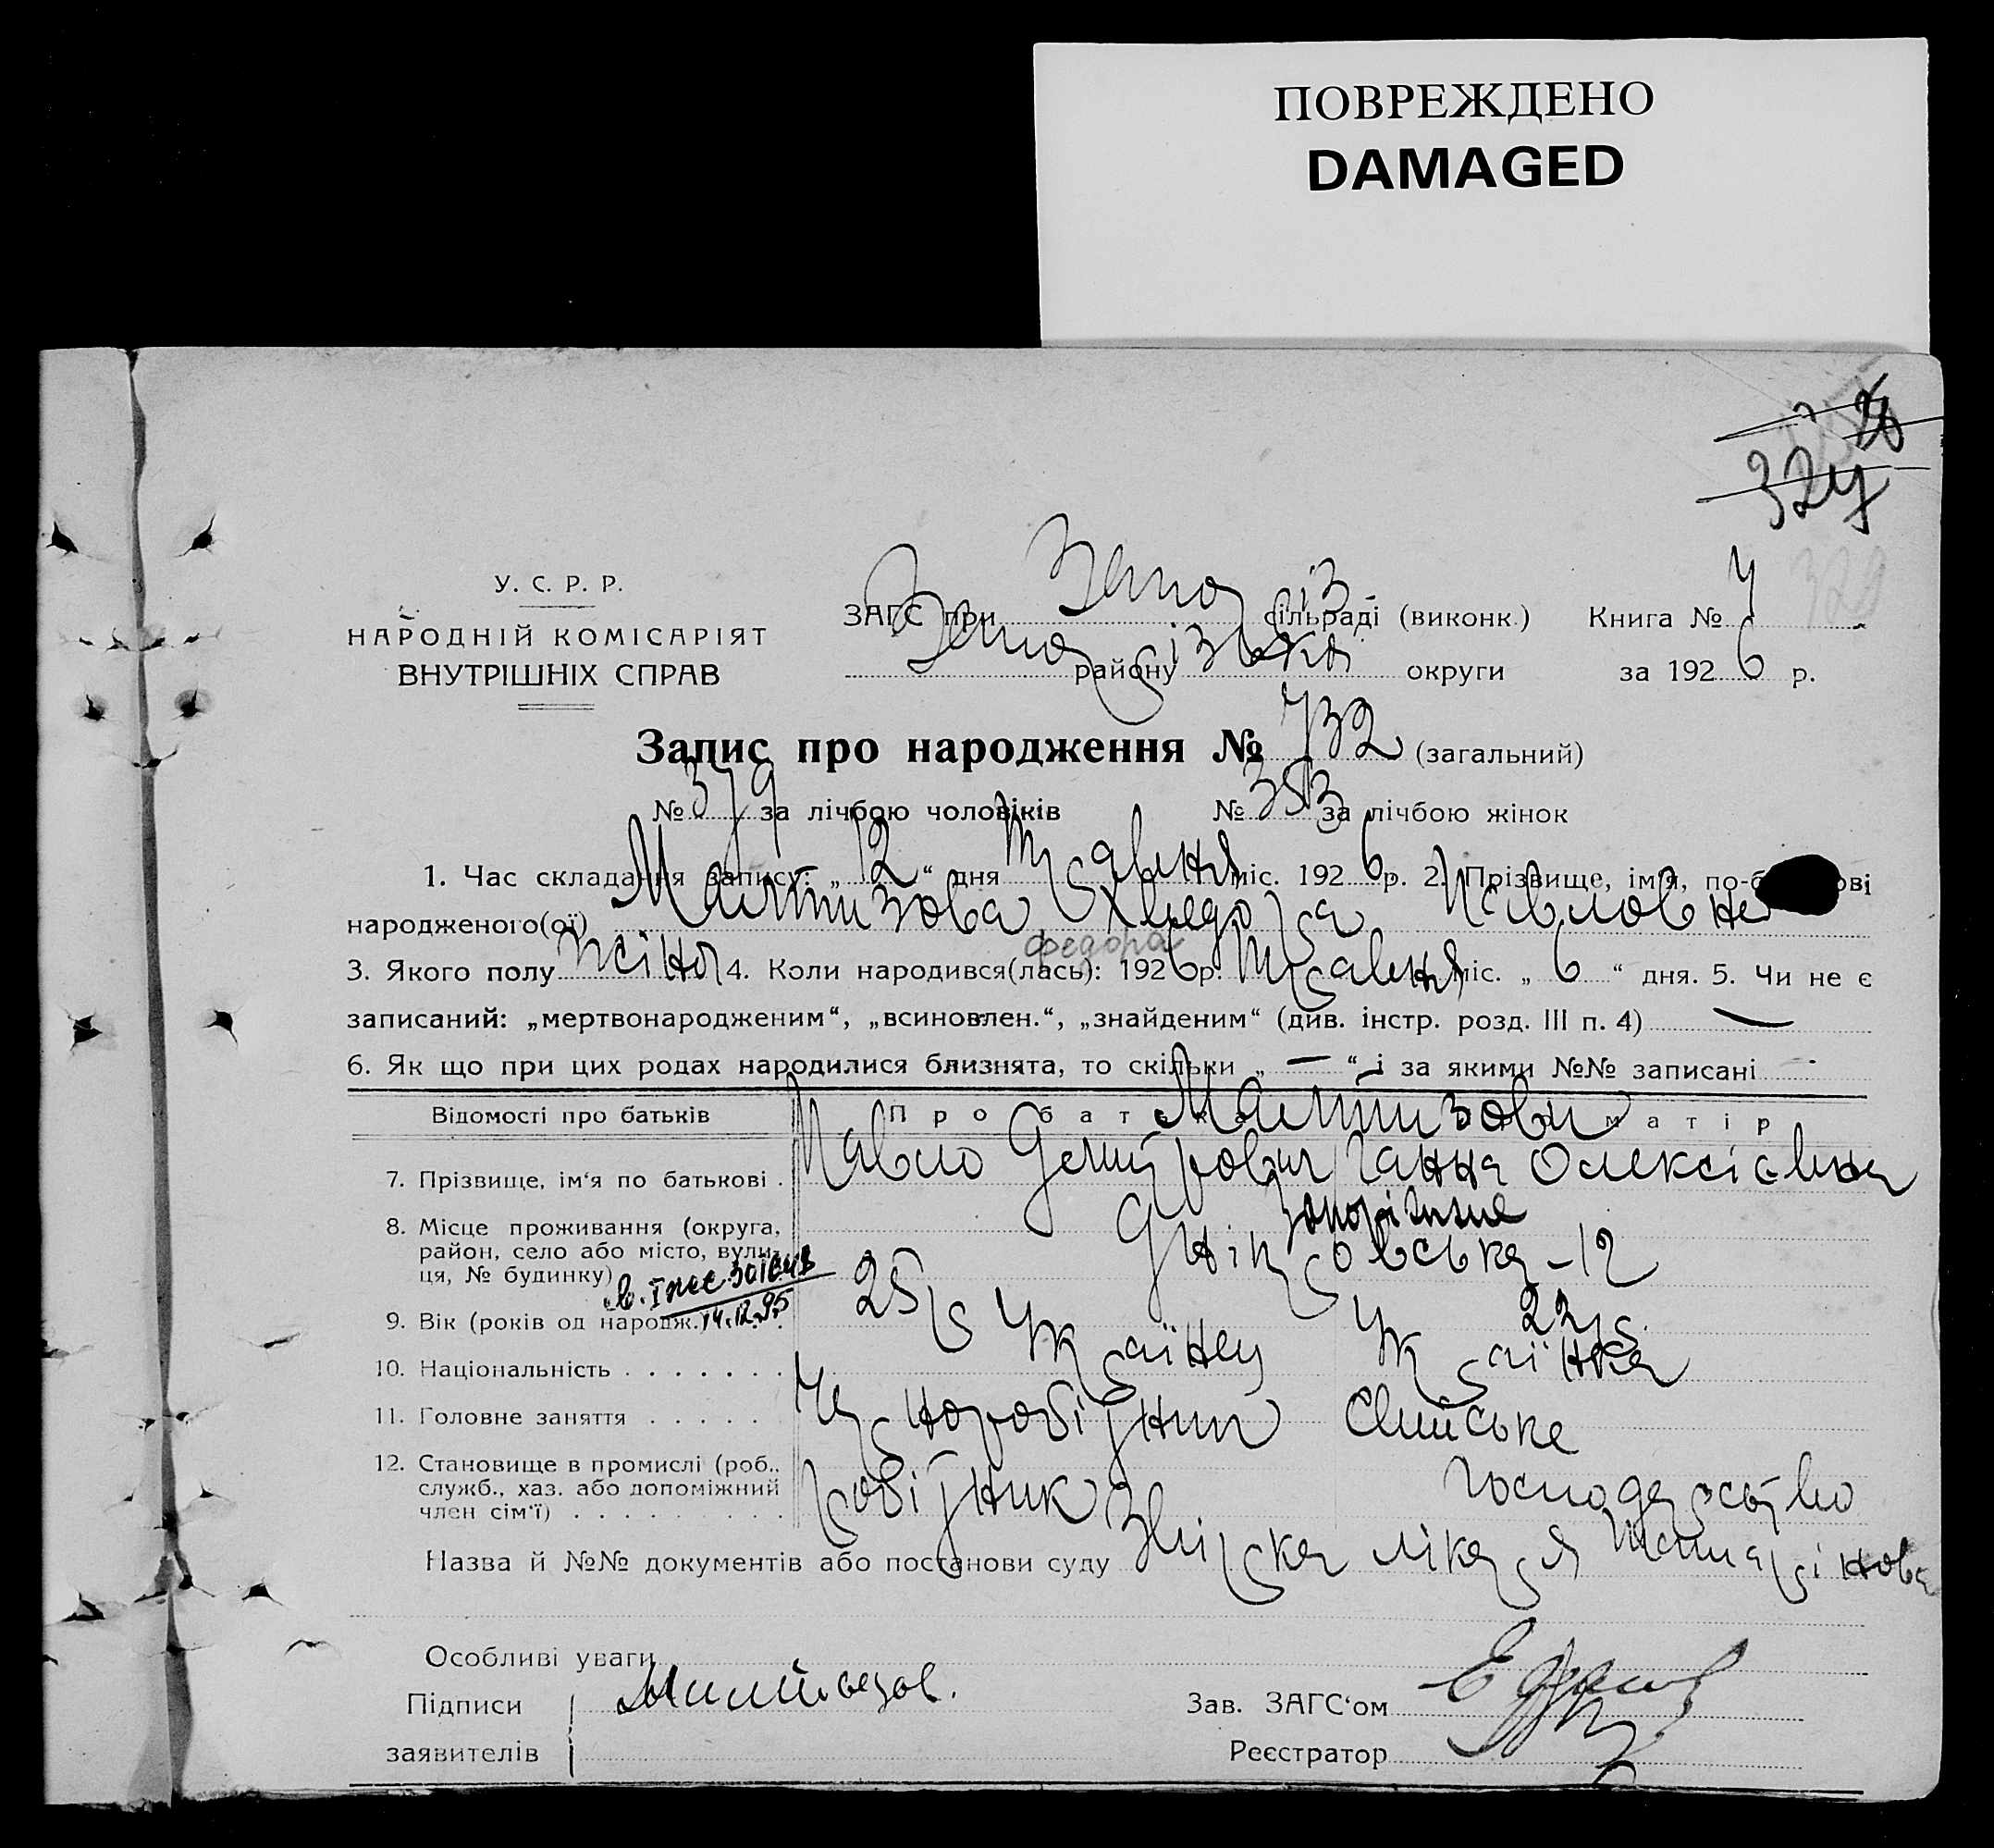 ПОВРЕЖДЕНО
DAMAGED
324
328
У. С. Р. Р.
НАРОДНІЙ КОМІСАРІЯТ
ВНУТРІШНІХ СПРАВ
ЗАГС при Запоріз. сільраді (виконк.) Книга № 4
району Запорізької округи за 1926 р.
Запис про народження № 732 (загальний)
№ 379 за лічбою чоловіків № 353 за лічбою жінок
1. Час складання запису: „12“ дня Травня міс. 1926 р. 2. Прізвище, ім'я, по-б ові
народженого(ої) Хведора Павловна
федора
3. Якого полу жіноч 4. Коли народився(лась): 1926 р. Травня міс. „6“ дня. 5. Чи не є
записаний: „мертвонародженим“, „всиновлен.“, „знайденим“ (див. інстр. розд. III п. 4) —
6. Як що при цих родах народилися близнята, то скільки „—“ і за якими №№ записані -
Відомості про батьків Про батька матір
7. Прізвище, ім‘я по батькові . Павло Дмитрович Ганна Олексіевна
8. Місце проживання (округа, район, село або місто, вули-ця, № будинку) Запоріжжє
Дніпровська-12
14.12.95
9. Вік (років од народж.) 25 р 22 р.
10. Національність . . . . . . . Українец Українка
11. Головне заняття . . . . . Чорноробітник Сільське
12. Становище в промислі (роб., служб., хаз. або допоміжний член сім‘ї) . . . . . . . . . робітник господарство
Назва й №№ документів або постанови суду лікаря
Особливі уваги
Підписи
заявителів
Зав. ЗАГС‘ом
Реєстратор